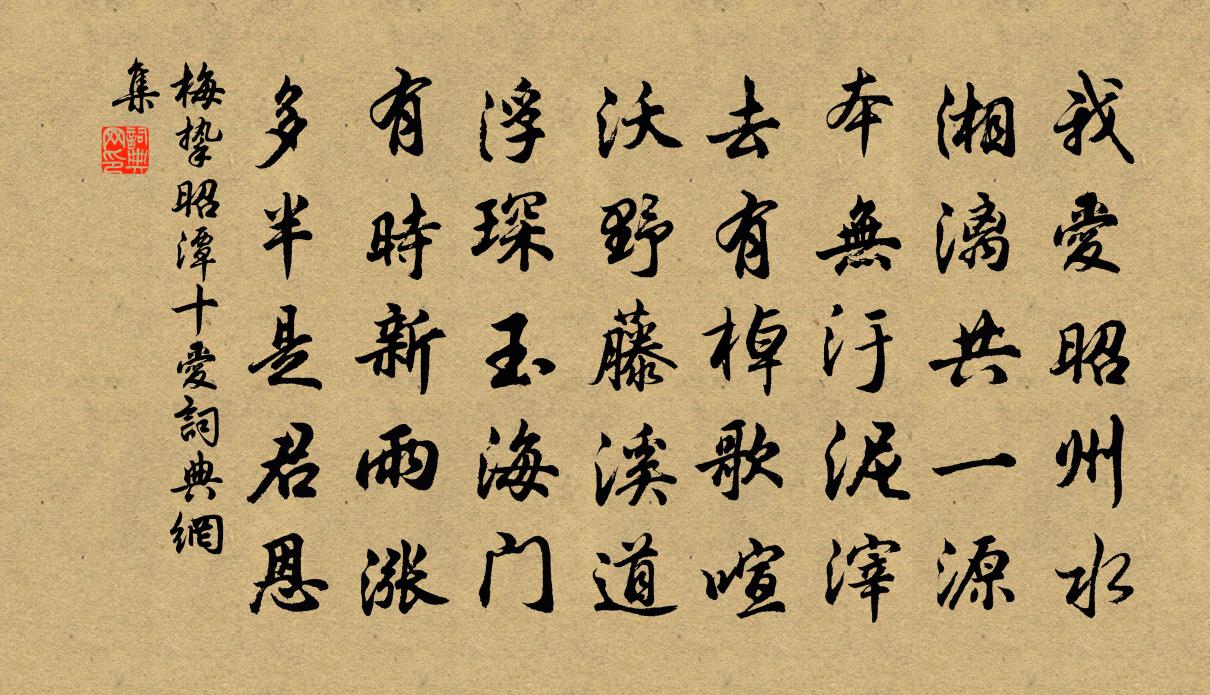 我愛昭州水
湘漓共一源
本無汙泥滓
去有棹歌喧
沃野藤溪道
浮琛玉海门
有時新雨漲
多半是君恩
梅摯昭潭十愛詞典網
集
詞典
网印